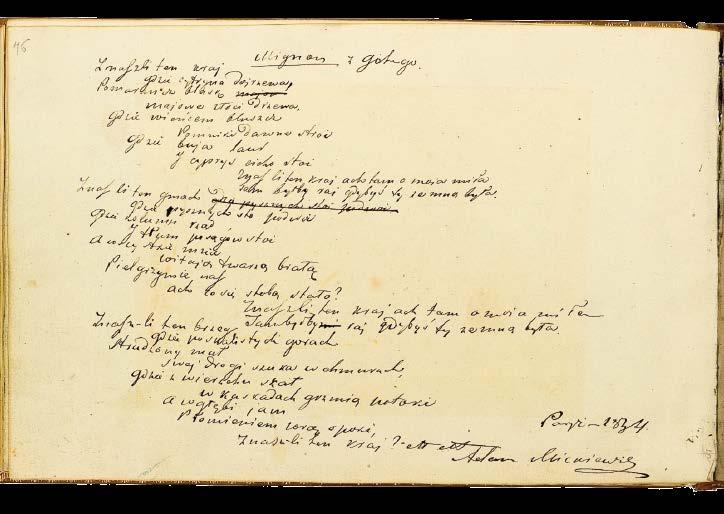 46
Mignon z Götego.
Znasz li ten kraj
Gdzie cytryna dojrzewa,
Pomarańcz blask major
majowe złoci drzewa.
Gdzie wieńcem bluszcz
Pomniki dawne stroi
Gdzie buja laur
I cyprys cicho stoi
Znasz li ten kraj ach tam o moja miła
Tam byłby raj gdybyś ty ze mną była.
Znasz li ten gmach
Gdzie sto podwoi
Gdzie kolumn rząd
I tłum posągów stoi
A wszystkie mnie
witają twarzą białą
Pielgrzymie nasz
ach co się z tobą stało?
Znasz li ten kraj ach tam o moia miła
Tam byłby raj gdybyś ty ze mną była
Znasz-li ten brzeg
gdzie po skalistych gorach
Strudzony muł
swej drogi szuka w chmurach,
Gdzie z wierzchu skał
w kaskadach grzmią potoki
A w głębi jam
Płomieniem wrą opoki,
Znasz-li ten kraj? - ett ett
Paryż - 1834.
Adam Mickiewicz